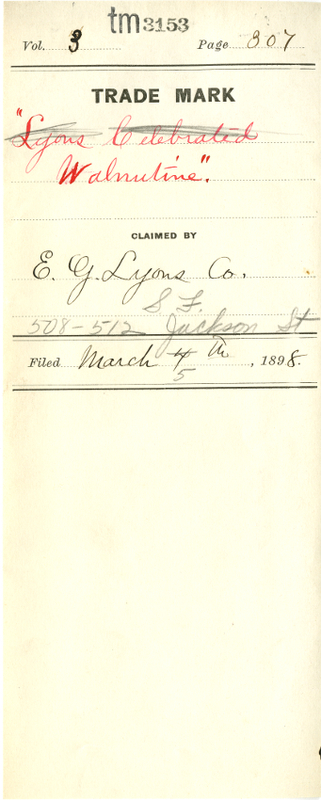 tm 3153
Vol. 3 Page 307
TRADE MARK
"Lyons Celebrated
Walnutine".
CLAIMED BY
E. G. Lyons Co.
S. F.
508-512 Jackson St
Filed March 4th, 1898.
5